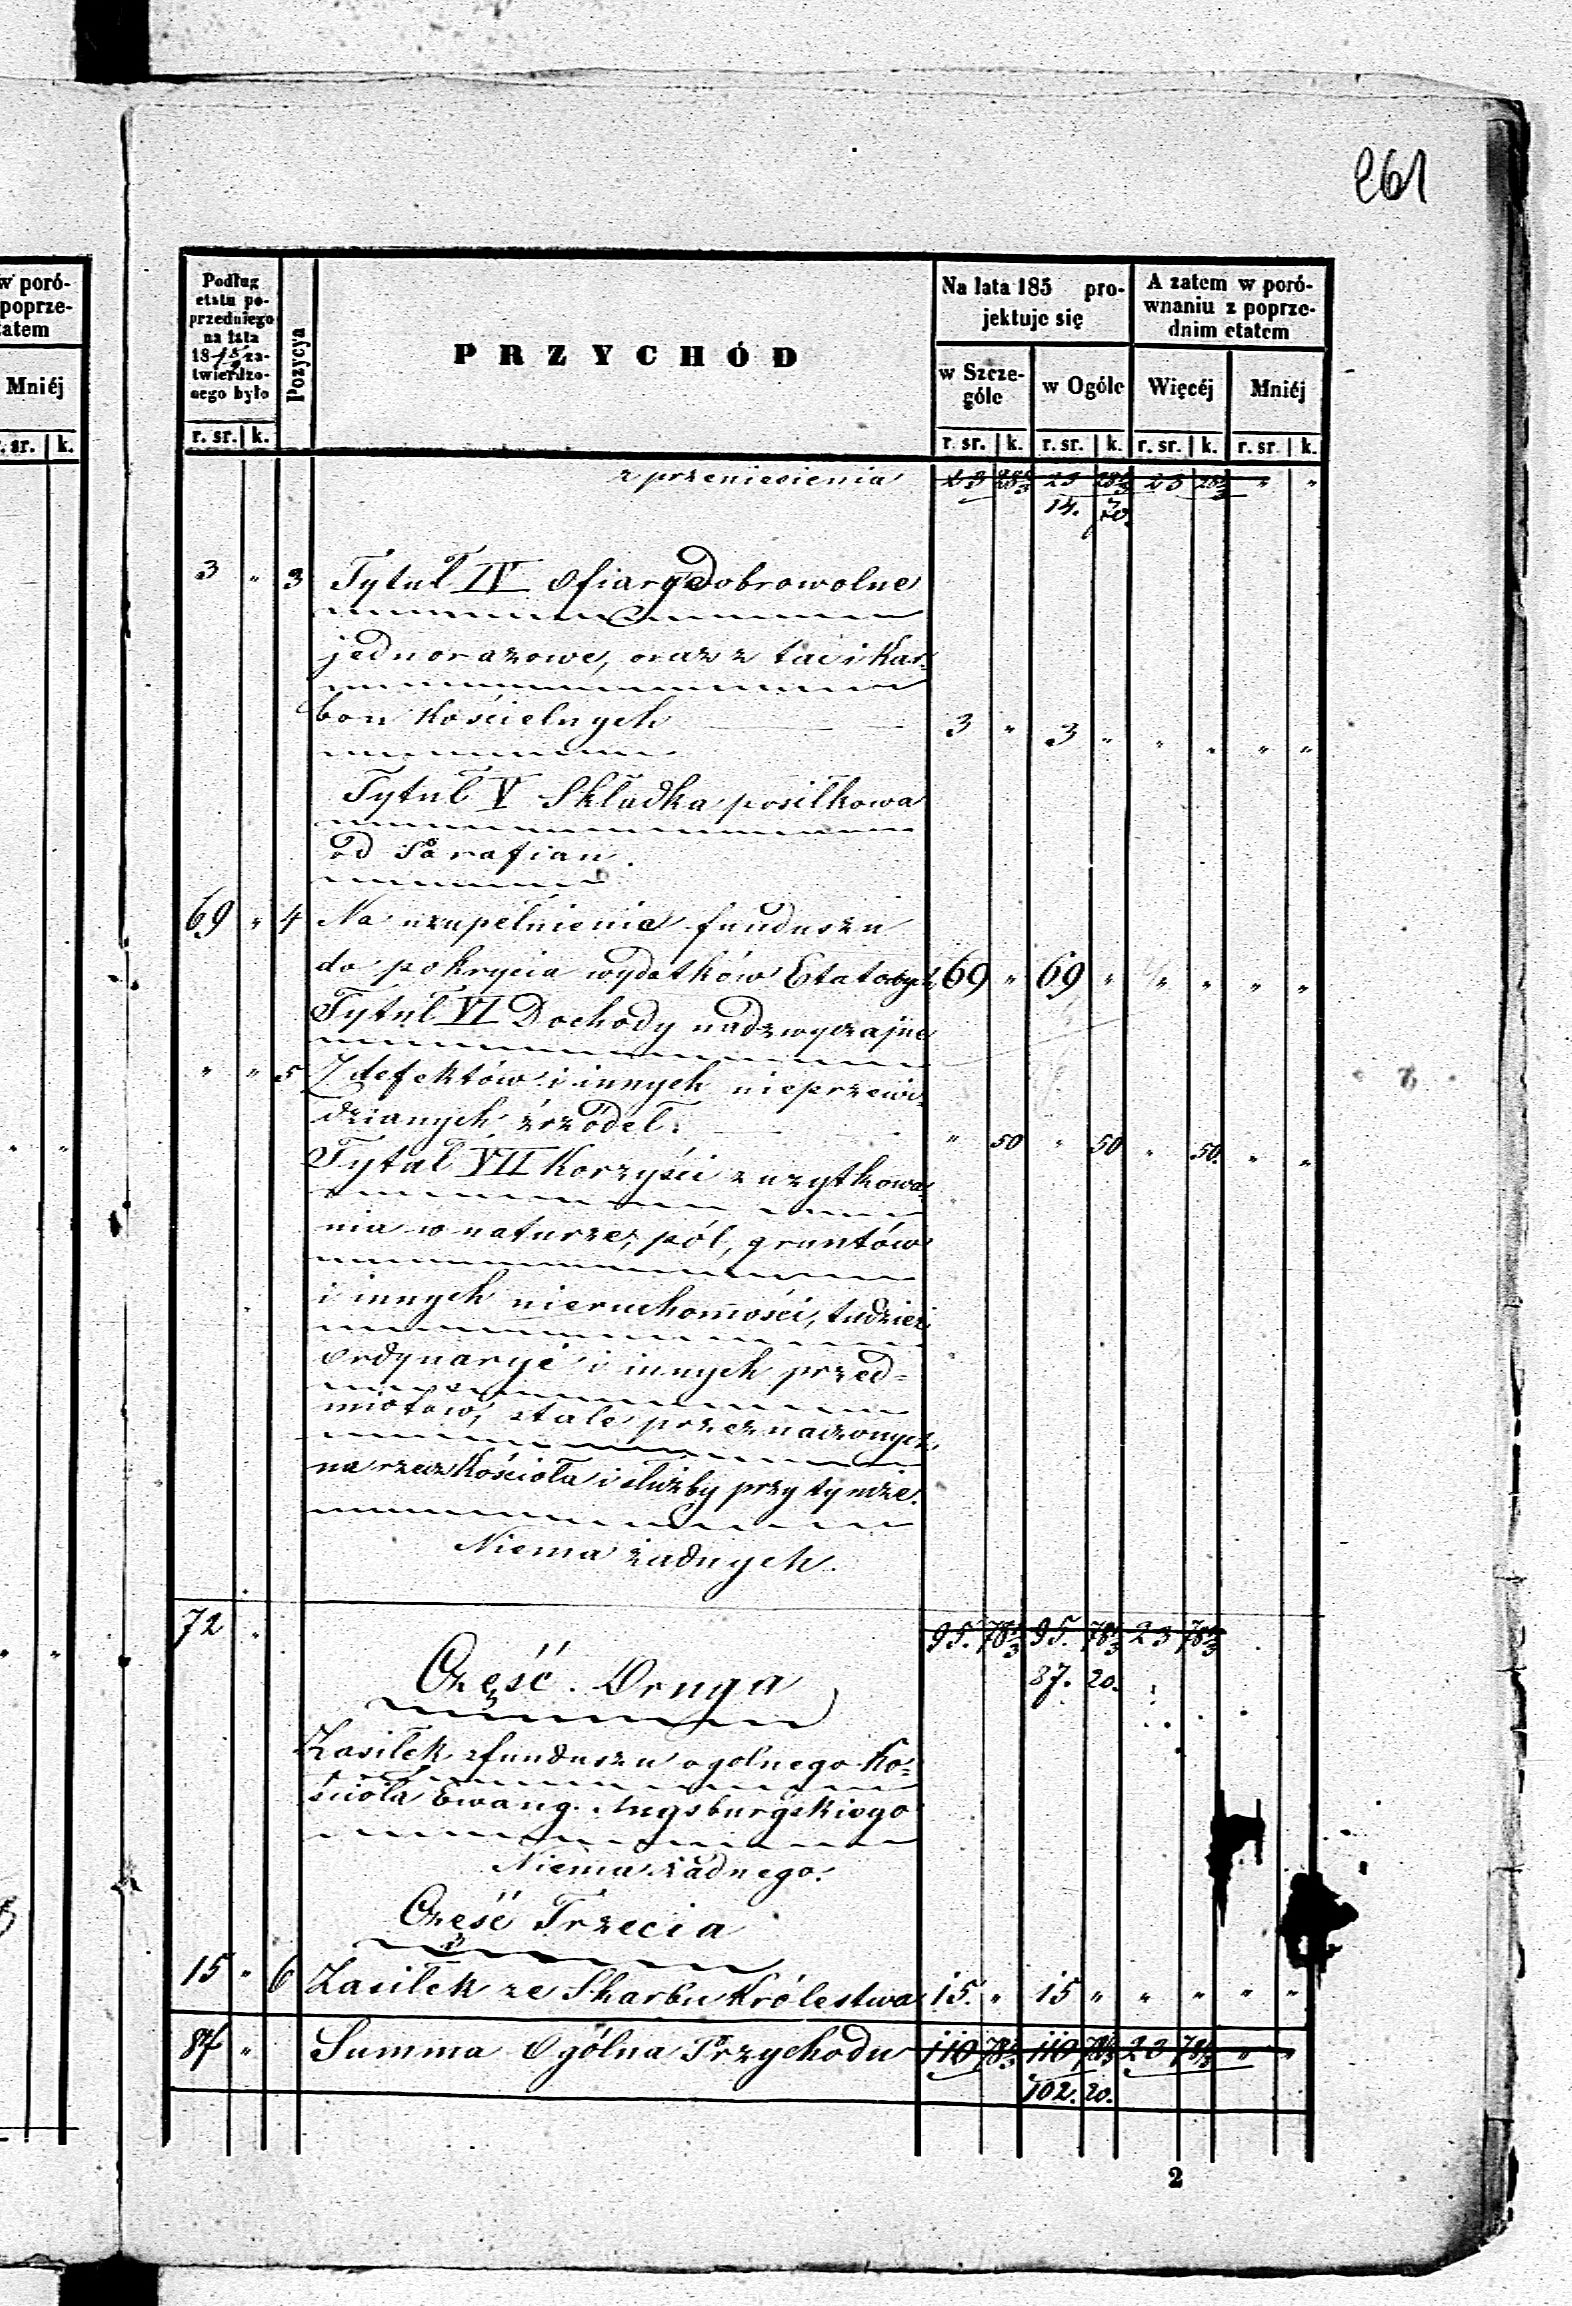 261
w poró-
poprze-
zatem
Mniéj
r. sr. k.
Podług
etatu po-
przedniego
na lata
18 za-
twierdzo-
nego było
Pozycya
PRZYCHÓD
Na lata 185 pro-
jektuje się
A zatem w poró-
wnaniu z poprze-
dnim etatem
w Szcze-
góle
w Ogóle
Więcéj
Mniéj
r. sr. k. r. sr. k. r. sr. k. r. sr. k. r. sr. k.
z przeniesienia 23 28 23 28 23 28 " "
14. 70.
3 " 3 Tytuł IV Ofiary Dobrowolne
jednorazowe, oraz z tac i Kar-
bon Kościelnych 3 " 3 " " " " "
Tytuł V Składka posiłkowa
od Parafian.
69 " 4 Na uzupełnienie funduszu
do pokrycia wydatków Etatowych 69 " 69 " " " " "
Tytuł VI Dochody nadzwyczajne
" " 5 Z defektów i innych nieprzewi-
dzianych źrzódeł. " 50 " 50 " 50. " "
Tytuł VII Korzyści z użytkowa-
nia w naturze, pól, gruntów
i innych nieruchomości, tudzież
ordynaryi i innych przed-
miotów, stale przeznaczonych
na rzecz Kościoła i służby przy tymże.
Niema żadnych.
72 " 95. 78 95. 78 23 78
87. 20.
Część Druga
Zasiłek z funduszu ogólnego Ko-
ścioła Ewang. Augsburgskiego
Niema żadnego.
Część Trzecia
15 " 6 Zasiłek ze Skarbu Królestwa 15. " 15 " " " " "
87 " Summa Ogólna Przychodu 110 78 110 78 23 78 " "
102. 20.
2